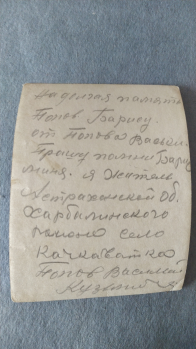 На долгая памить
Попов Барису.
от Попова Васили.
Прашу помни Барис
миня. я Житель
Астраханской Об.
Харбалинского
раиона село
Качкаватка
Попов Василий
Кузмич